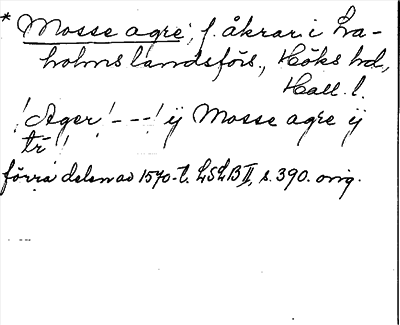 * Mosse agre, f. åkrar i La-
holms landsförs., Höks hd.,
Hall. l.
! Ager! - - -! ij Mosse agre ij
tr !
förra delen av 1570-t. LSLB II, s. 390. orig.